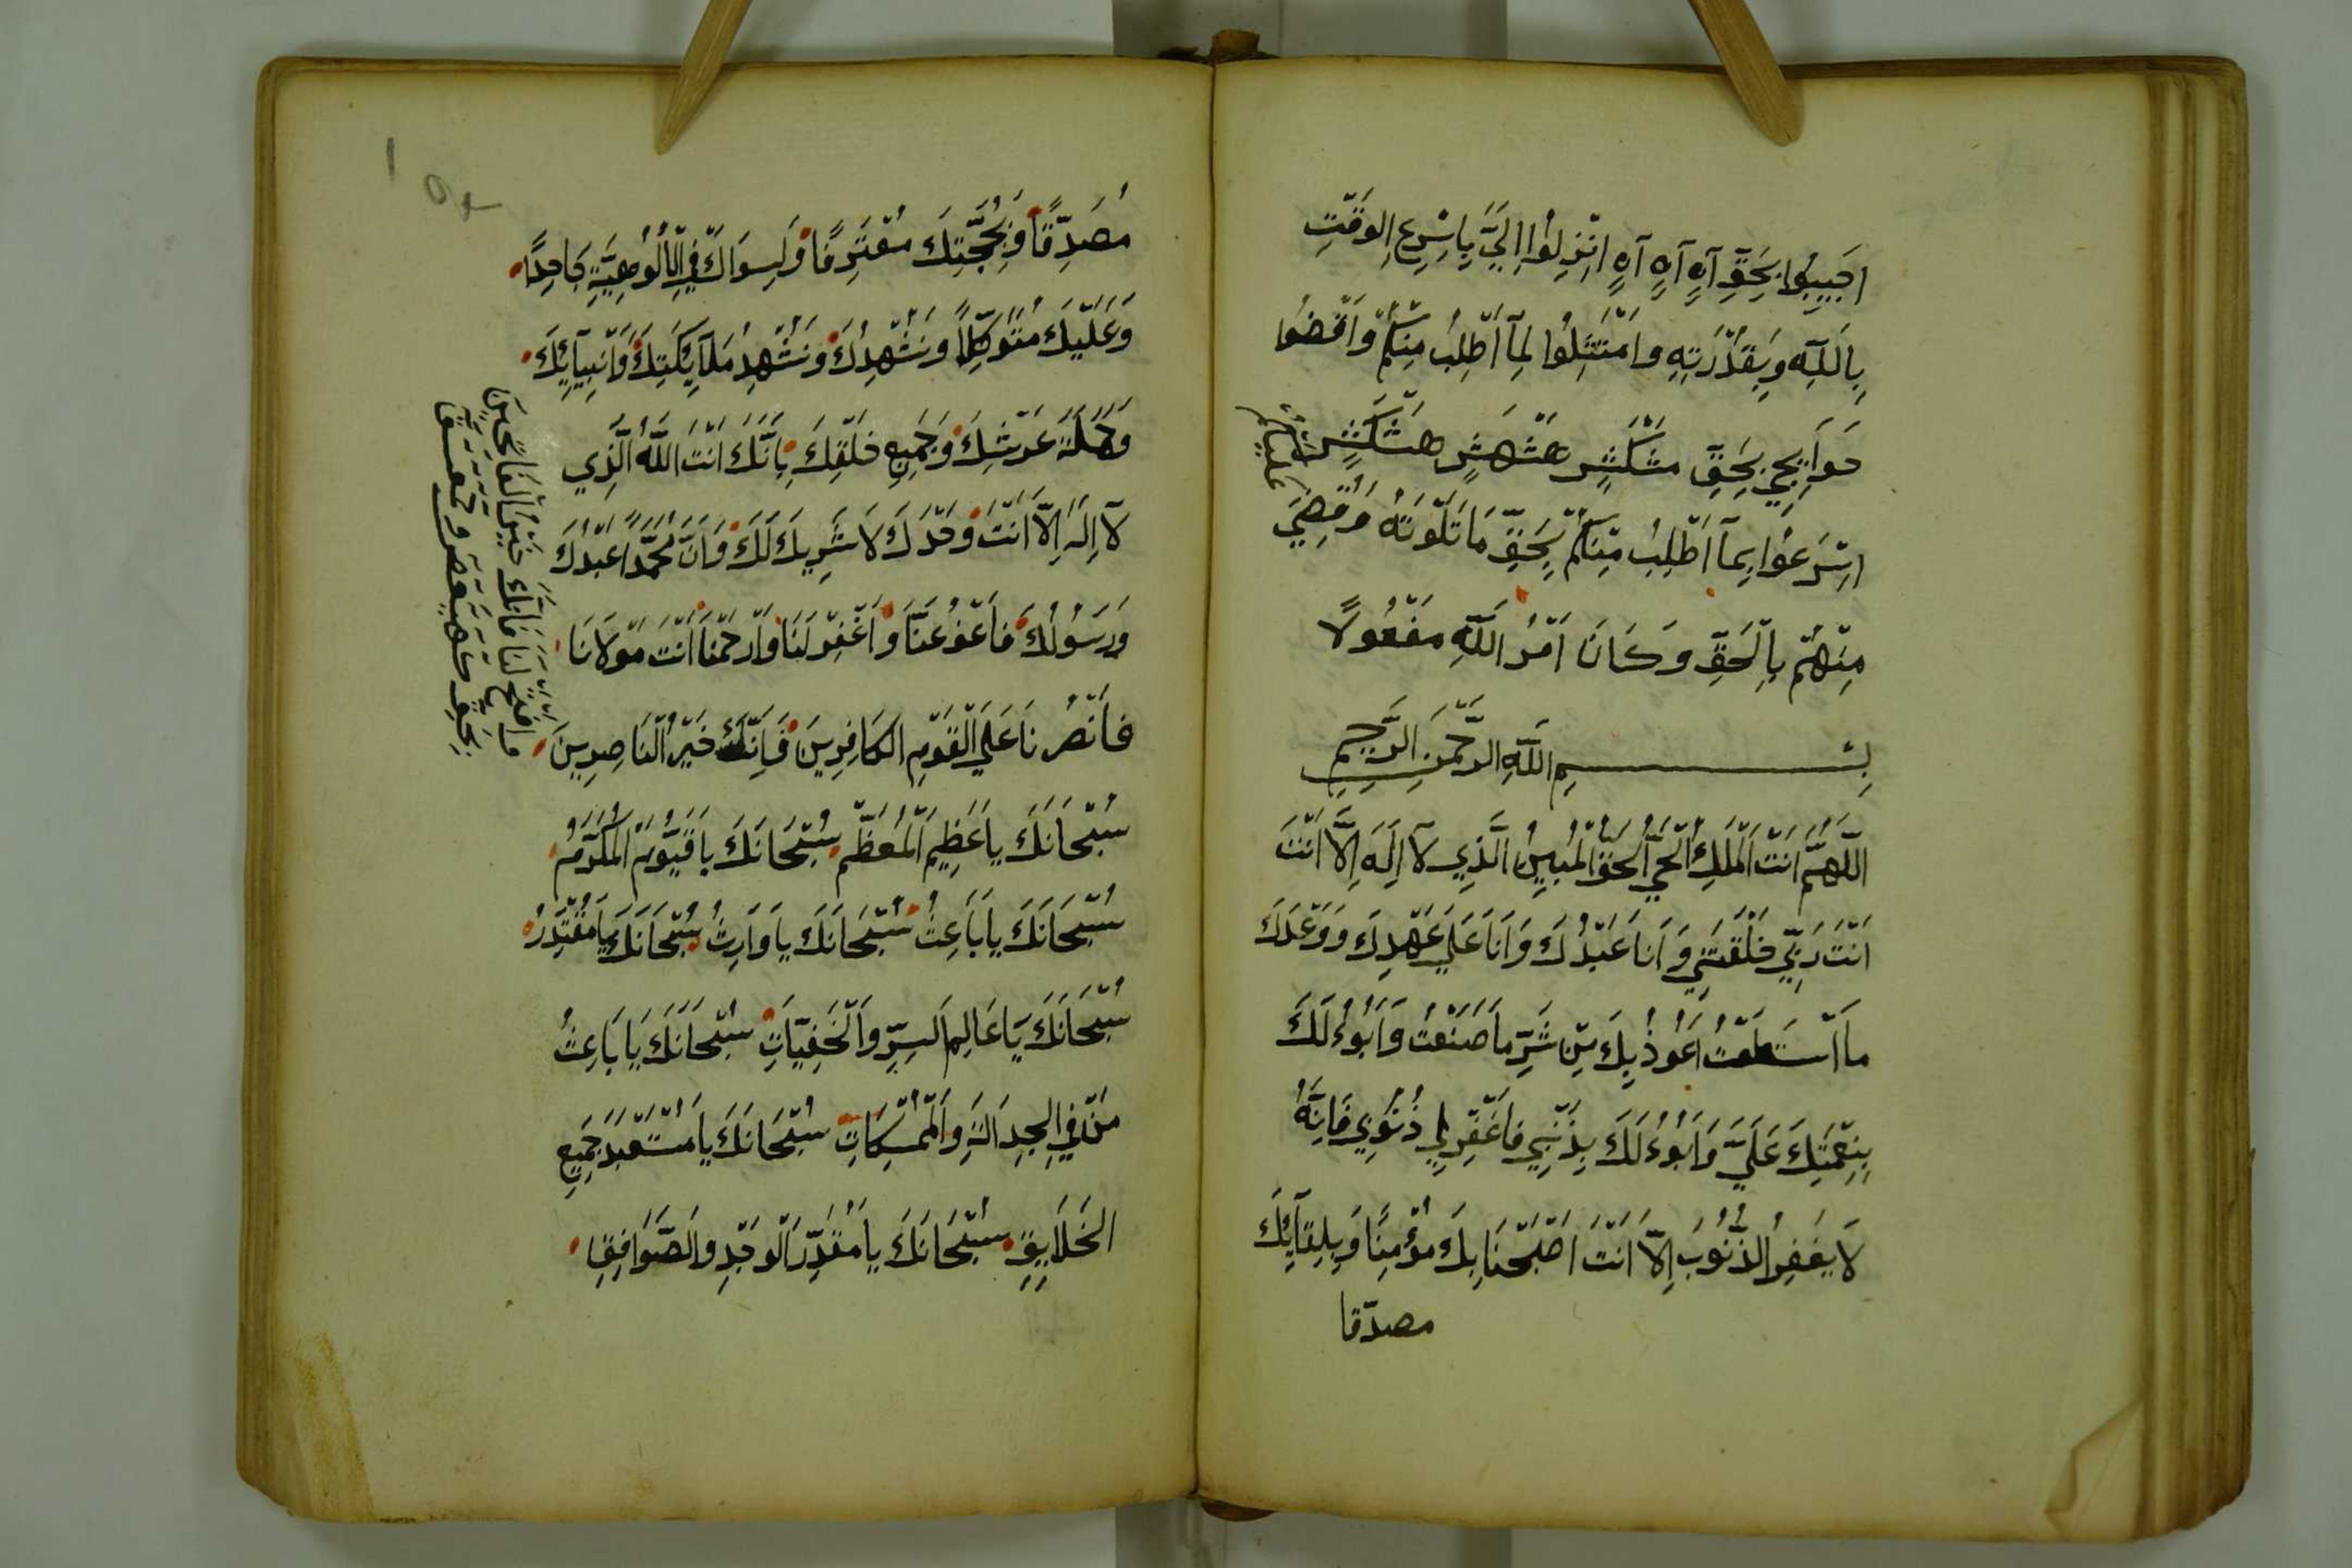 اجيبوا بحق آهٍ آهٍ آهٍ انزلوا اليّ باسرع الوقت
بالله وبقدرته وامتثلوا لمآ اطلب منكم واقضوا
حوايجي بحق مشكشٍ هشهشٍ هشكشٍ
اسرعوا بمآ اطلب منكم بحق ما تلوته عليكم وقضي
منهم بالحق وكان امر الله مفعولاً
بسم الله الرحمن الرحيم
اللّهمّ انت الملك الحيّ الحق المبين الّذي لآ اله الّا انت
انت ربّي خلقتني وانا عبدك وانا علي عهدك ووعدك
ما استطعت اعوذ بك من شرّ ما صنعت وابوء لك
بنعمتك عليّ وابوء لك بذنبي فاغفر لي ذنوبي فانّه
لا يغفر الذّنوب الّا انت اصبحنا بك مؤمنًا وبلقآئك
مصدّقا
مصدّقًا وبحجّتك معترفًا ولسواك في الألوهيّة جاحدًا
وعليك متوكّلاً ونشهدك ونشهد ملآئكتك وانبيآئك
وحملة عرشك وجميع خلقك بانّك انت اللّه الّذي
لآ اله الّا انت وحدك لا شريك لك وانّ محمّدًا عبدك
ورسولك فاعفو عنّا واغفر لنا وارحمنا انت مولانا
فانصرنا علي القوم الكافرين فانّك خير النّاصرين
وافتح لنا فانّك خير الفاتحين
بحق كهيعص وحمعسق
سبحانك يا عظيم المعظّم سبحانك يا قيّوم المكرّم
سبحانك يا باعث سبحانك يا وارث سبحانك يا مقتدر
سبحانك يا عالم السرّ والخفيّات سبحانك يا باعث
من في الجدالة والممسكات سبحانك يا مستعبد جميع
الخلايق سبحانك يا مقدّر الوجد والصّوافق